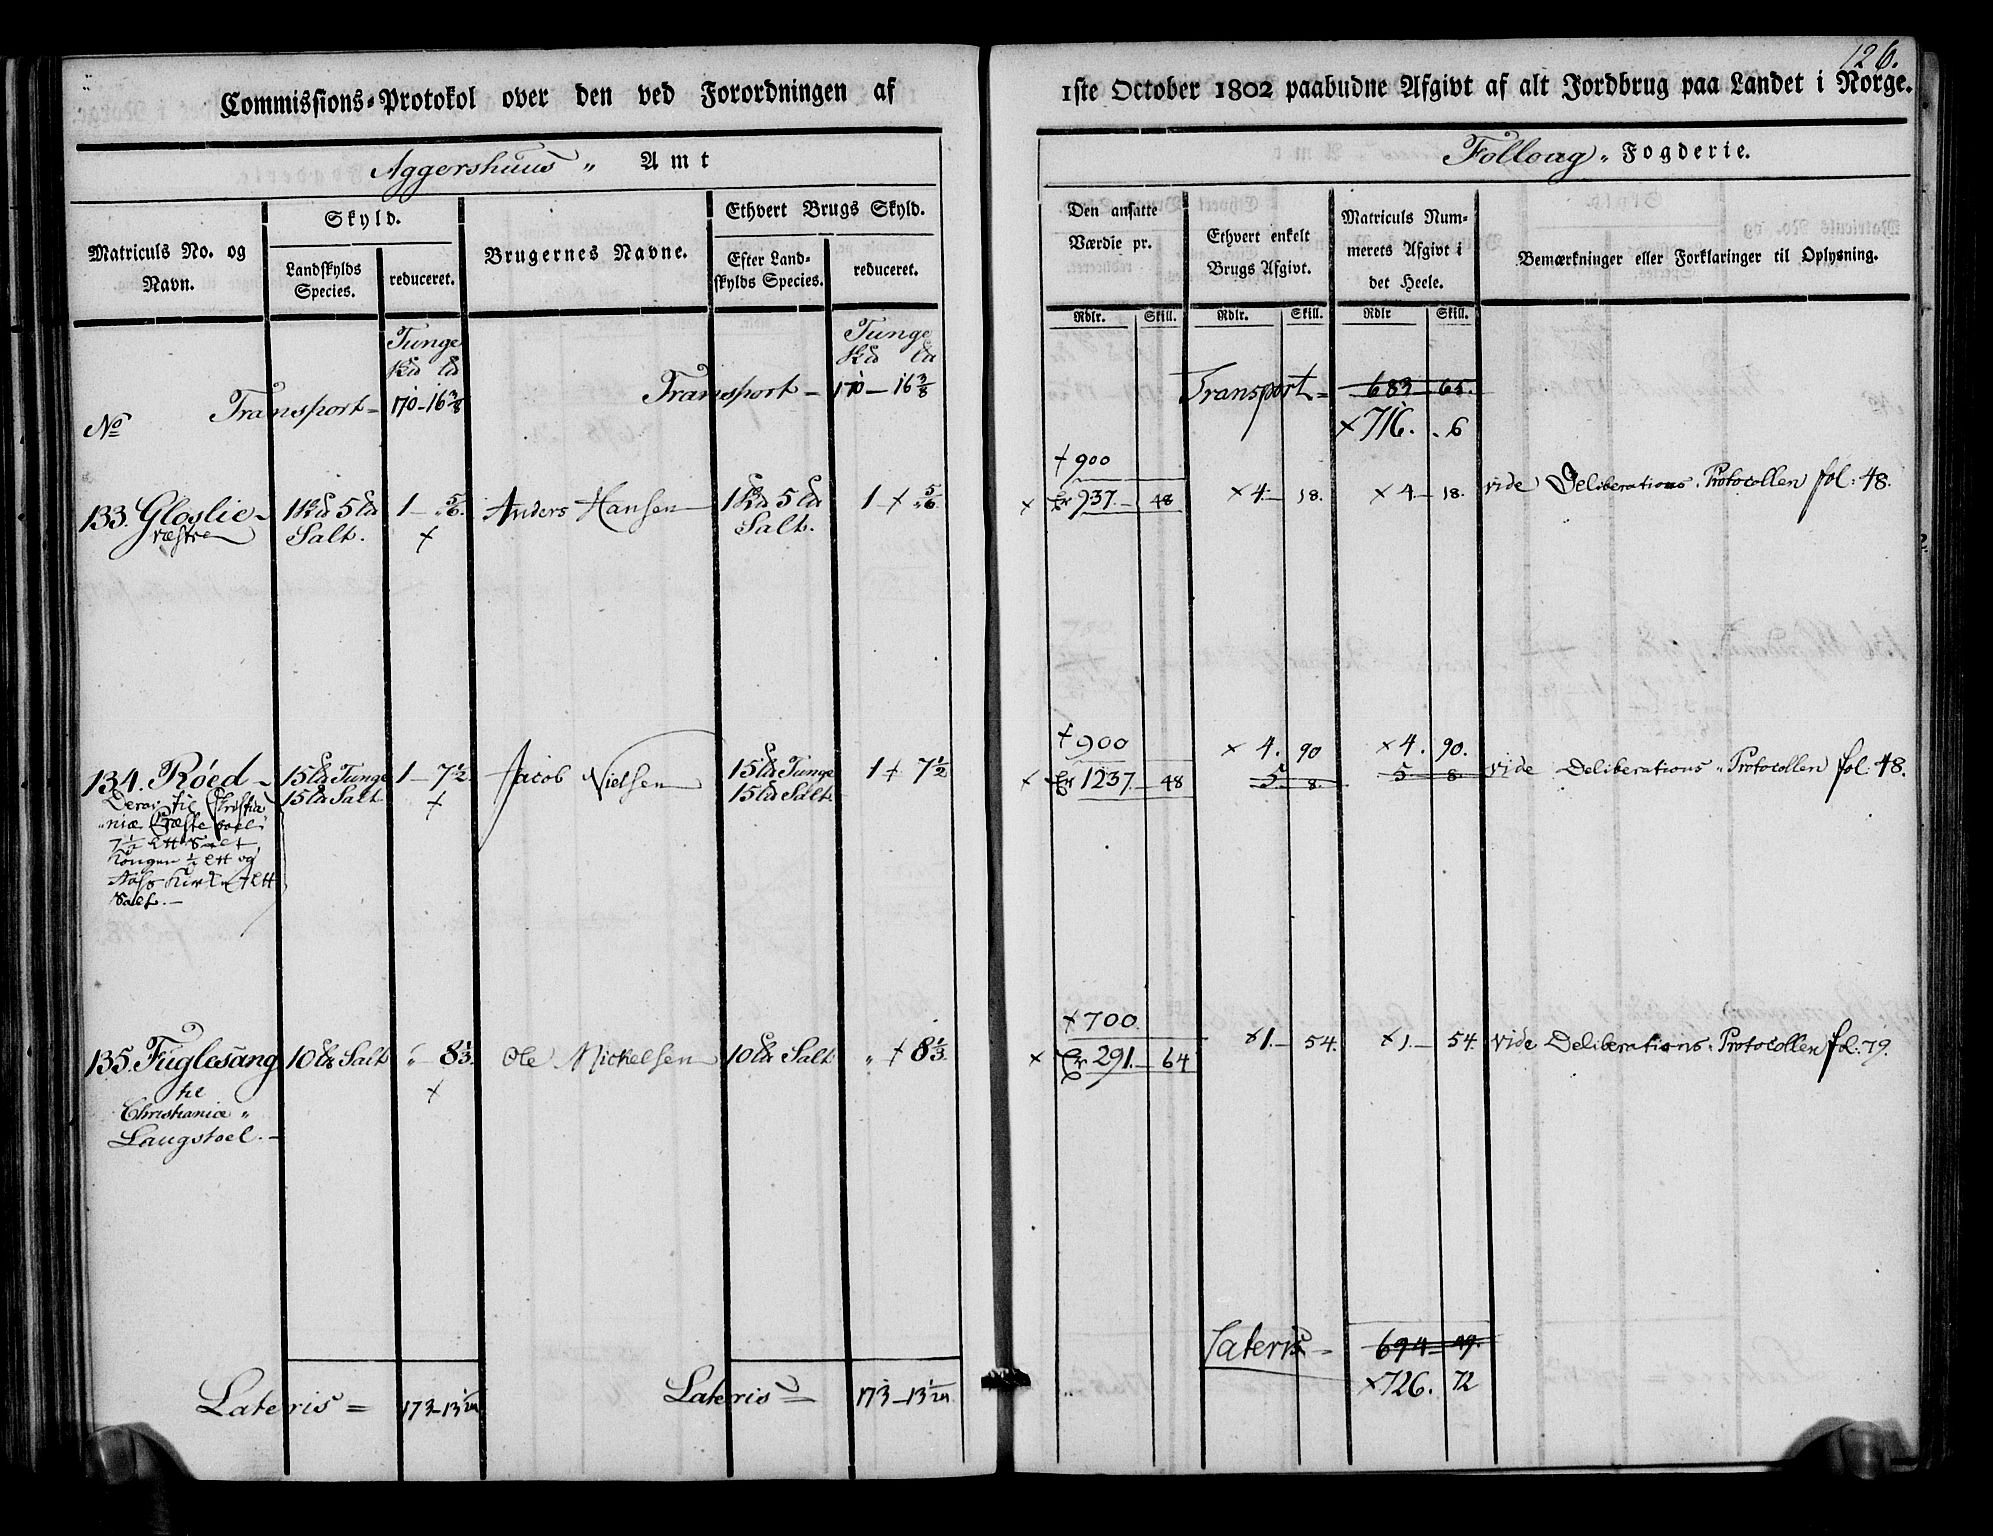 126.
Commissions-Protokol over den ved Forordningen af
1ste October 1802 paabudne Afgivt af alt Jordbrug paa Landet i Norge.
Aggershuus „ Amt
Folloug „ Fogderie.
Matriculs No. og Navn.
Skyld.
Landskylds Species.
reduceret.
Brugernes Navne.
Ethvert Brugs Skyld.
Efter Landskylds Species.
reduceret.
Den ansatte Værdie pr.
Ethvert enkelt Brugs Afgivt.
Matriculs Nummerets Afgivt i det Heele.
Bemærkninger eller Forklaringer til Oplysning.
Rdlr. Skill. Rdlr. Skill. Rdlr Skill.
Tunge Tunge
No Transport - 170 - 16 3/8 Transport - 170 - 16 3/8 Transport = 683 - 65.
× 716. - 6
+ 900
133. Gloslie - 1 5 1 - „ 5/6. Anders Hansen 1 5 1 + „ 5/6. × 937. - 48 × 4 - 18. × 4 - 18. vide Deliberations „ Protocollen fol: 48.
væstre Salt. + Salt.
+ 900 × 4. 90 × 4. 90.
134. Röed - 15 Tunge 1 - 7 1/2 Jacob Nielsen 15 Tunge 1 + 7 1/2 × 1237. - 48 5 - 8. 5 - 8. vide Deliberations „ Protocollen fol: 48.
15 Salt + 15 Salt
Deraf til Christia
niæ
7 1/2 Salt,
Kongen 1/2 og
Salt. -
+ 700.
135. Fuglesang 10 Salt „ - 8 1/3. Ole Mickelsen 10 Salt „ + 8 1/3. × 291. - 64 × 1. - 54. × 1. - 54. vide Deliberations „ Protocollen fol: 79.
til +
Christianiæ „
Laugstoel. -
Lateris = 694 - 29.
× 726. 72
Lateris = 173 - 13 1/24 Lateris = 173 - 13 1/24.